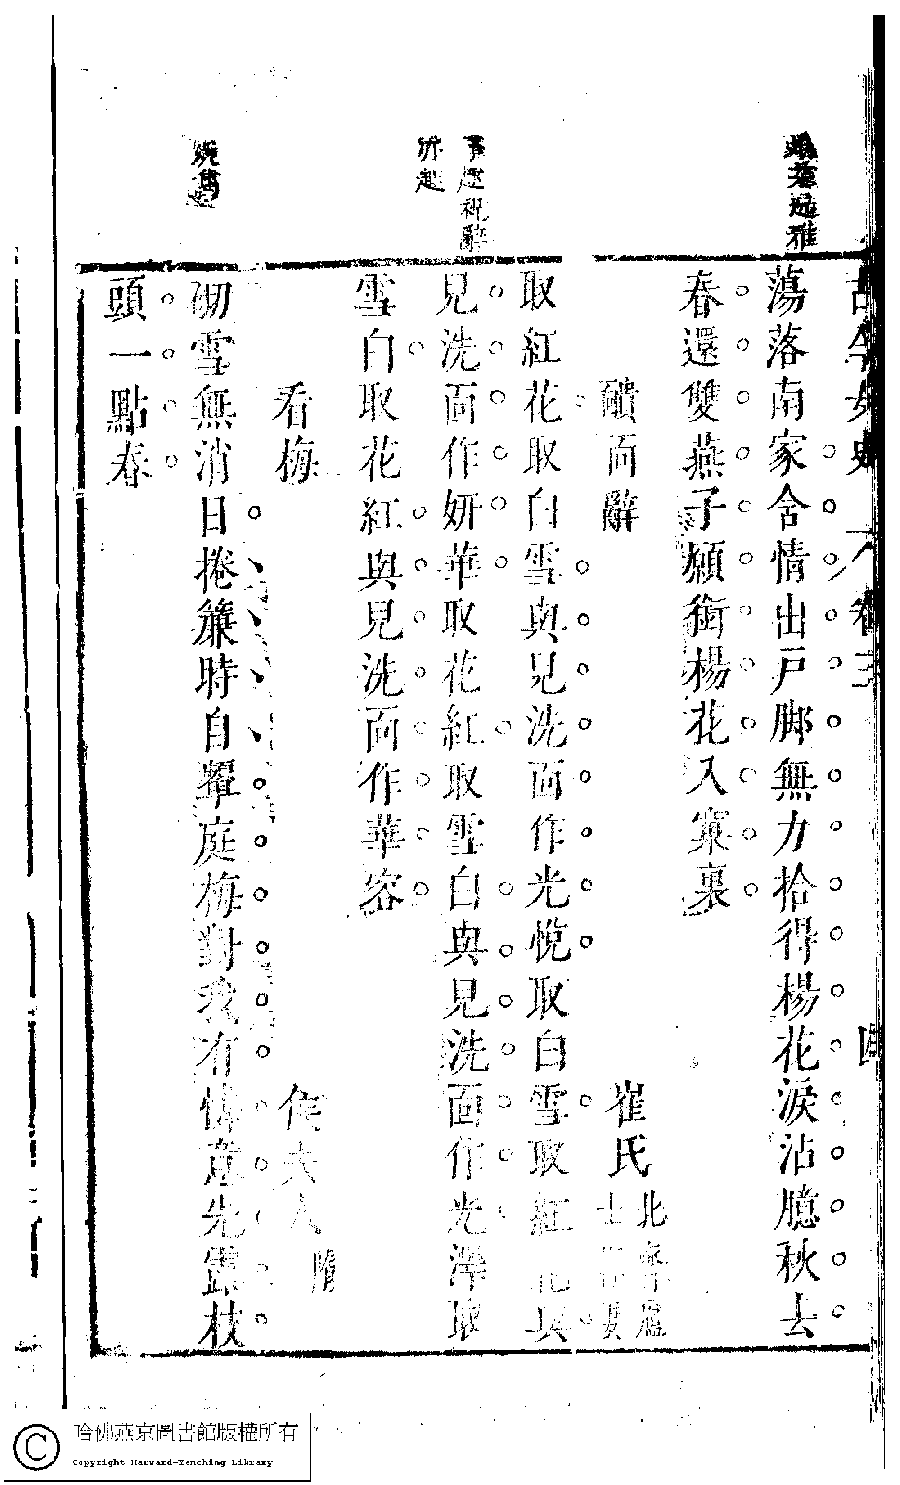 古今女史 卷三 四
蕩落南家含情出戶脚無力拾得楊花淚沾臆秋去
春還雙燕子願銜楊花入窠裏
靧面辭 崔氏 北齊盧士深妻
事趣祝辭亦趣
取紅花取白雪與兒洗面作光悅取白雪取紅花與
兒洗面作妍華取花紅取雪白與兒洗面作光澤取
雪白取花紅與兒洗面作華容
看梅 侯夫人 隋
砌雪無消日捲簾時自顰庭梅對我有憐意先露枝
頭一點春
哈佛燕京圖書館版權所有
Copyright Harvard-Yenching Library